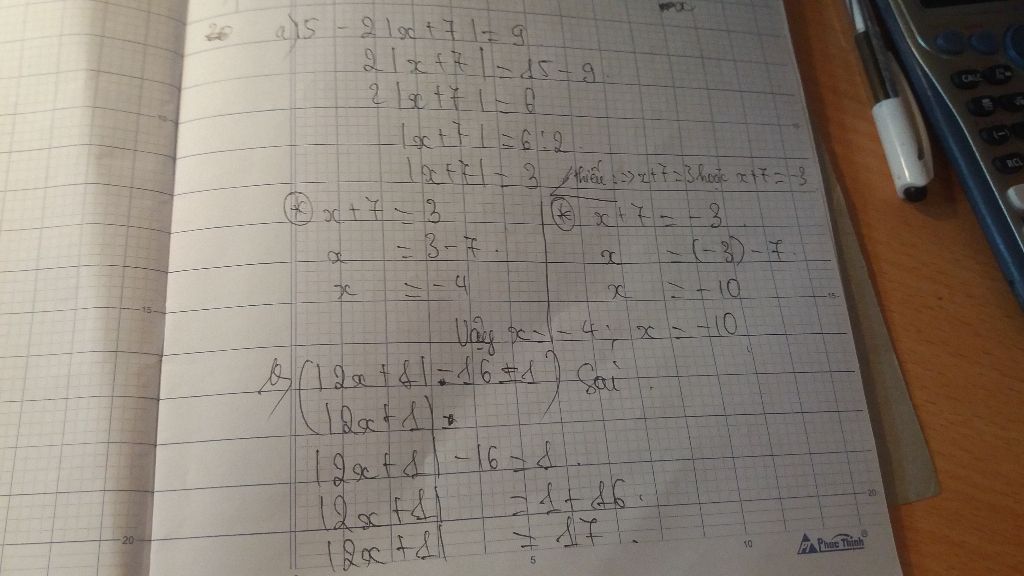 a) 15 - 2|x+7| = 9
2|x+7| = 15 - 9.
2|x+7| = 6
|x+7| = 6:2.
|x+7| = 3 thiếu => x+7=3 hoặc x+7=-3
* x+7 = 3
x = 3-7.
x = -4
* x+7 = -3
x = (-3) - 7.
x = -10
Vậy x = -4; x = -10
b) (|2x+1| - 16 = 1) Sai.
(|2x+1|
|2x+1| - 16 = 1.
|2x+1| = 1+16.
|2x+1| = 17.
15
20
5
10
15
20
Phuc Thinh
CALC
(-)
RCL